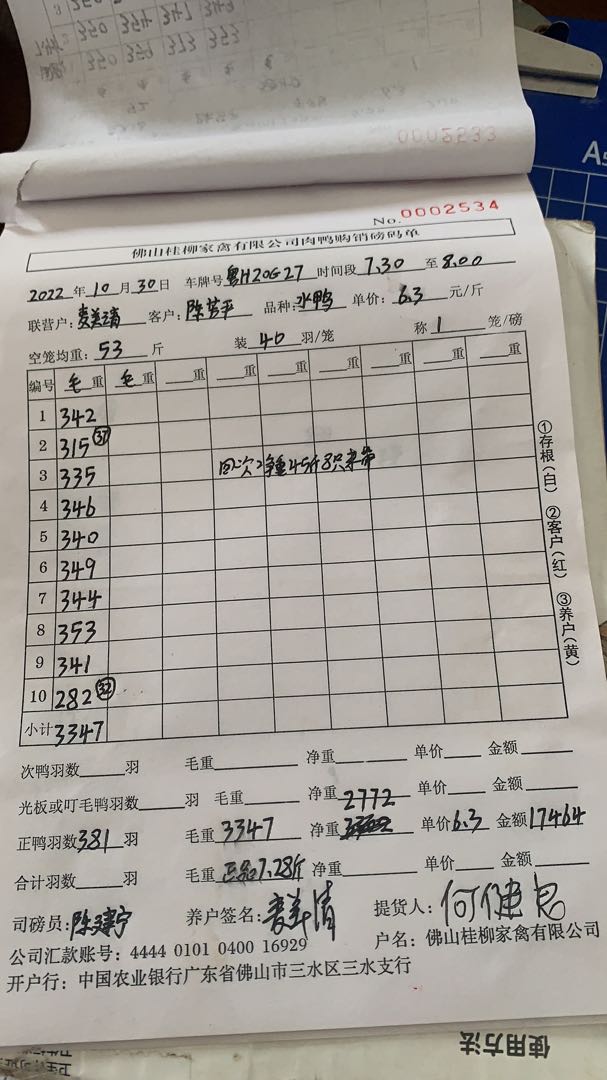 0002533
No. 0002534
佛山桂柳家禽有限公司肉鸭购销磅码单
2022年10月30日 车牌号粤H20G27 时间段7.30至8.00
联营户:麦美清 客户:陈芳平 品种:水鸭 单价:6.3元/斤
空笼均重:53斤 装40羽/笼 称1笼/磅
编号 毛重 毛重 重 重 重 重 重 重 重
1 342
2 315 37
3 335
4 346
5 340
6 349
7 344
8 353
9 341
10 282 32
小计 3347
①存根(白) ②客户(红) ③养户(黄)
次鸭羽数 羽 毛重 净重 单价 金额
光板或叮毛鸭羽数 羽 毛重 净重2772 单价 金额
正鸭羽数381羽 毛重3347 净重 单价6.3 金额17464
合计羽数 羽 毛重正品7.28斤 净重 单价 金额
司磅员:陈建宁 养户签名:麦美清 提货人:
公司汇款账号:4444 0101 0400 16929 户名:佛山桂柳家禽有限公司
开户行:中国农业银行广东省佛山市三水区三水支行
使用方法